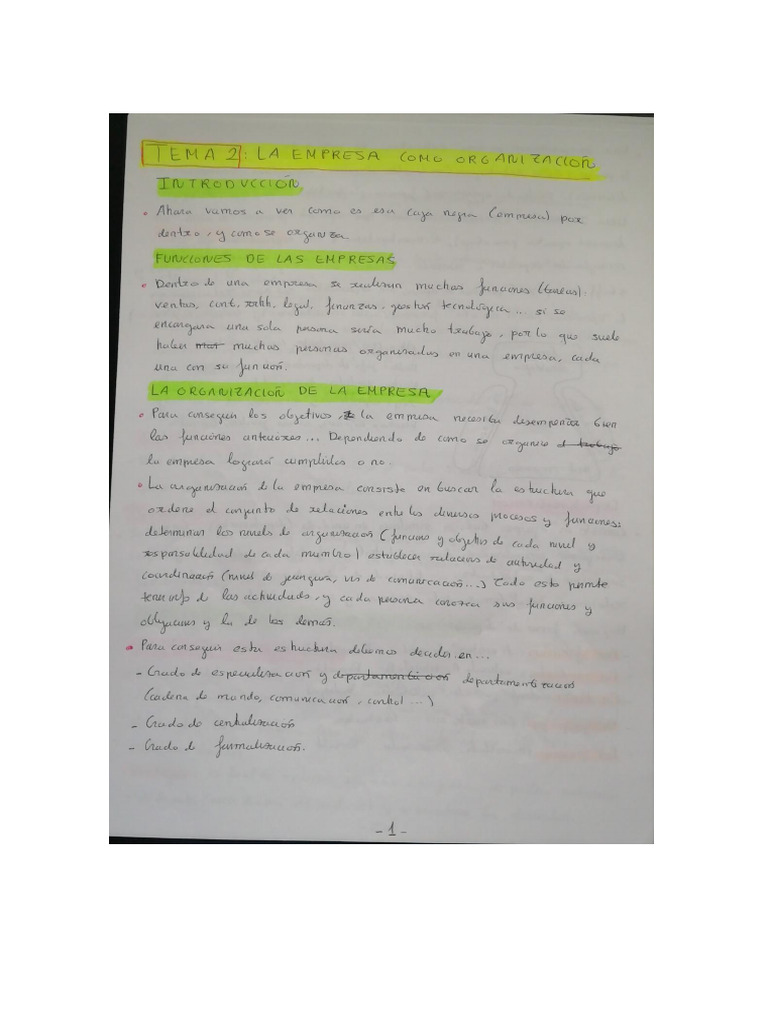 TEMA 2: LA EMPRESA COMO ORGANIZACIÓN
INTRODUCCIÓN
• Ahora vamos a ver como es esa caja negra (empresa) por
dentro, y como se organiza.
FUNCIONES DE LAS EMPRESAS
• Dentro de una empresa se realizan muchas funciones (tareas):
ventas, cont, rrhh, legal, finanzas, gestión tecnológica... si se
encargara una sola persona sería mucho trabajo, por lo que suele
haber muchas personas organizadas en una empresa, cada
una con su función.
LA ORGANIZACIÓN DE LA EMPRESA
• Para conseguir los objetivos, la empresa necesita desempeñar bien
las funciones anteriores... Dependiendo de como se organice el trabajo
la empresa logrará cumplirlos o no.
• La organización de la empresa consiste en buscar la estructura que
ordene el conjunto de relaciones entre los diversos procesos y funciones:
determinar los niveles de organización (funciones y objetivos de cada nivel y
responsabilidad de cada miembro) establecer relaciones de autoridad y
coordinación (nivel de jerarquía, de comunicación...) Todo esto permite
de las actividades, y cada persona conozca sus funciones y
obligaciones y la de los demás.
• Para conseguir esta estructura debemos decidir en...
- Grado de especialización y departamentación departamentización
(cadena de mando, comunicación, control...)
- Grado de centralización
- Grado de formalización.
- 1 -